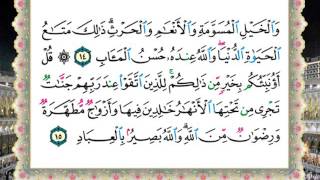 وَالْخَيْلِ الْمُسَوَّمَةِ وَالْأَنْعَامِ وَالْحَرْثِ ۗ ذَٰلِكَ مَتَاعُ
الْحَيَاةِ الدُّنْيَا ۖ وَاللَّهُ عِندَهُ حُسْنُ الْمَآبِ ١٤ قُلْ
أَؤُنَبِّئُكُم بِخَيْرٍ مِّن ذَٰلِكُمْ ۚ لِلَّذِينَ اتَّقَوْا عِندَ رَبِّهِمْ جَنَّاتٌ
تَجْرِي مِن تَحْتِهَا الْأَنْهَارُ خَالِدِينَ فِيهَا وَأَزْوَاجٌ مُّطَهَّرَةٌ
وَرِضْوَانٌ مِّنَ اللَّهِ ۗ وَاللَّهُ بَصِيرٌ بِالْعِبَادِ ١٥